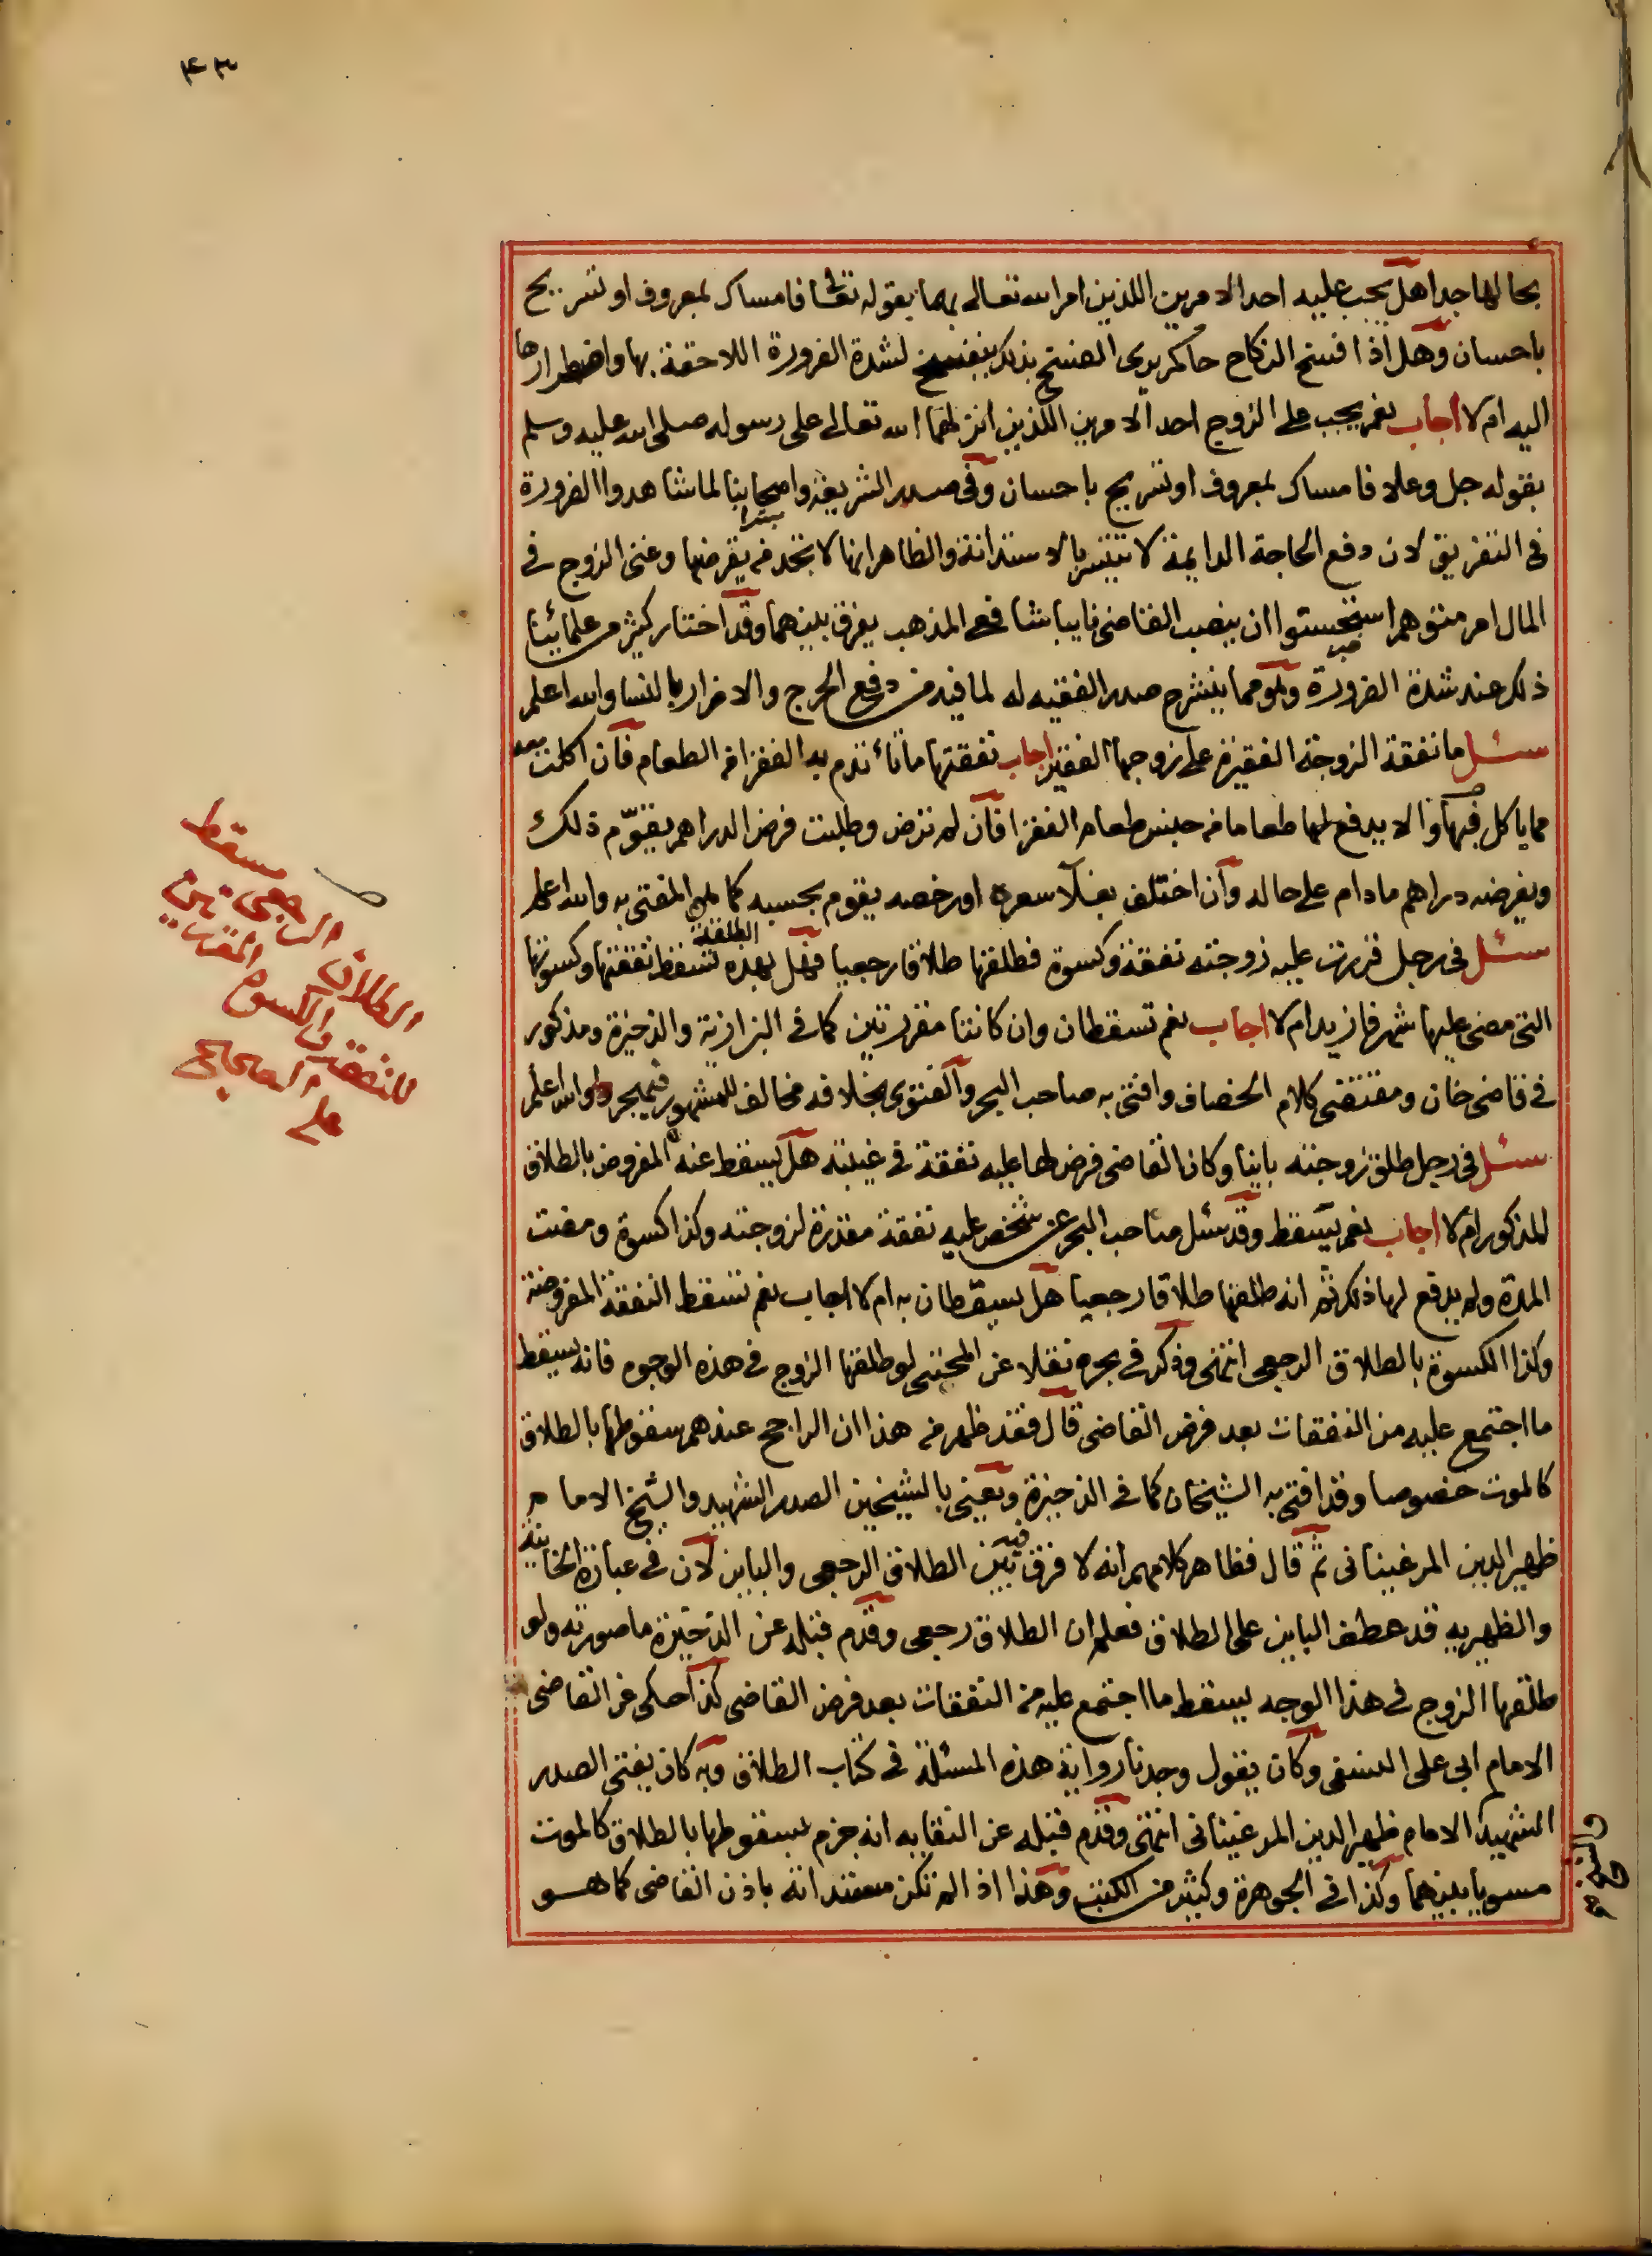 ٤٣
بحالها جدا هل يجب عليه احد الامرين اللذين امر الله تعالى بهما بقوله تعالى فامساك بمعروف او تسريح
باحسان وهل اذا فسخ النكاح حاكم يرى الفسخ بذلك ينفسخ لشدة الضرورة اللاحقة بها واضطرارها
اليه ام لا اجاب نعم يجب على الزوج احد الامرين اللذين انزلهما الله تعالى على رسوله صلى الله عليه وسلم
بقوله جل وعلا فامساك بمعروف او تسريح باحسان وفي صدر الشريعة واصحابنا لما شاهدوا الضرورة
في التفريق لان دفع الحاجة الدايمة لا تتيسر بالاستدانة والظاهر انها لا تجد من يقرضها وغنى الزوج في
المال امر متوهم استحسنوا ان ينصب القاضي نايبا شافعي المذهب يفرق بينهما وقد اختار كثير من علمائنا
ذلك عند شدة الضرورة وهو مما ينشرح صدر الفقيه له لما فيه من دفع الحرج والاضرار بالنسا والله اعلم
سئل ما نفقة الزوجة الفقيرة على زوجها الفقير اجاب نفقتها ما تأتدم به الفقرا من الطعام فان اكلت معه
مما ياكل فبها والا يدفع لها طعاما من جنس طعام الفقرا فان لم ترض وطلبت فرض الدراهم يقوّم ذلك
ويفرضه دراهم ما دام على حاله وان اختلف بغلاء سعره او رخصه يقوم بحسبه كما هو المفتى به والله اعلم
سئل في رجل قررت عليه زوجته نفقة وكسوة فطلقها طلاقا رجعيا فهل بهذه الطلقة تسقط نفقتها وكسوتها
التي مضى عليها شهر فازيد ام لا اجاب نعم تسقطان وان كانتا مقررتين كما في البزازية والذخيرة ومذكور
في قاضي خان ومقتضى كلام الخصاف وافتى به صاحب البحر والفتوى بخلافه مخالف للمشهور فيهجر والله اعلم
سئل في رجل طلق زوجته باينا وكان القاضي فرض لها عليه نفقة في غيبته هل يسقط عنه المفروض بالطلاق
المذكور ام لا اجاب نعم يسقط وقد سئل صاحب البحر عن شخص عليه نفقة مقدرة لزوجته وكذا كسوة ومضت
المدة ولم يدفع لها ذلك ثم انه طلقها طلاقا رجعيا هل يسقطان به ام لا اجاب نعم تسقط النفقة المفروضة
وكذا الكسوة بالطلاق الرجعي انتهى وذكر في بحره نقلا عن المجتبى لو طلقها الزوج في هذه الوجوه فانه يسقط
ما اجتمع عليه من النفقات بعد فرض القاضي قال فقد ظهر من هذا ان الراجح عندهم سقوطها بالطلاق
كالموت خصوصا وقد افتى به الشيخان كما في الذخيرة ونعني بالشيخين الصدر الشهيد والشيخ الامام
ظهير الدين المرغيناني ثم قال فظاهر كلامهم انه لا فرق فيه بين الطلاق الرجعي والباين لان في عبارة الخانية
والظهيرية قد عطف الباين على الطلاق فعلم ان الطلاق رجعي وقدم قبله عن الذخيرة ما صورته ولو
طلقها الزوج في هذا الوجه يسقط ما اجتمع عليه من النفقات بعد فرض القاضي كذا حكي عن القاضي
الامام ابي علي النسفي وكان يقول وجدنا رواية هذه المسئلة في كتاب الطلاق وبه كان يفتي الصدر
الشهيد والامام ظهير الدين المرغيناني انتهى وقدم قبله عن النقابه انه جزم بسقوطها بالطلاق كالموت
مسويا بينهما وكذا في الجوهرة وكثير من الكتب وهذا اذا لم تكن مستدانة باذن القاضي كما هو
الطلاق الرجعي مسقط
للنفقة والكسوة المقررتين
على الصحيح